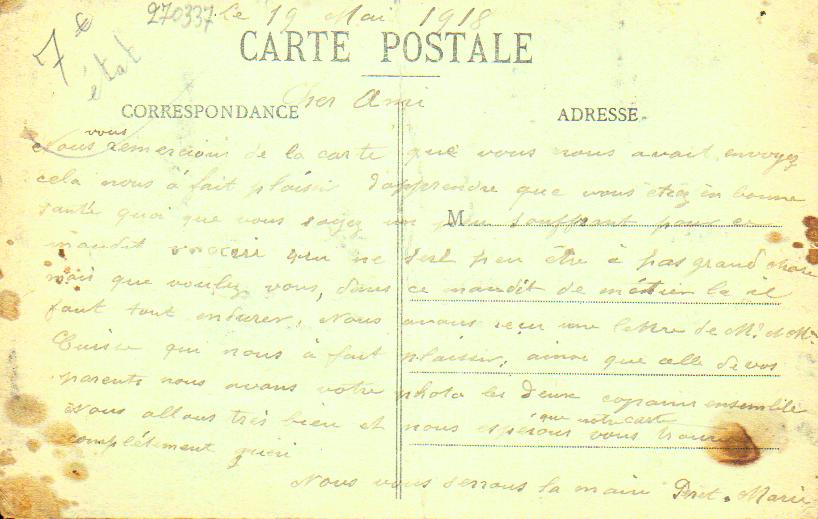 270337 Le 19 Mai 1918
7 €
état
CARTE POSTALE
Cher Ami
CORRESPONDANCE
ADRESSE
vous
Nous remercions de la carte que vous nous avait envoyez
cela nous à fait plaisir d'apprendre que vous étiez en bonne
santé quoi que vous soyez un peu souffrant pour ce
M
maudit vaccin qui ne sert peu être à pas grand chose
mais que voulez vous, dans ce maudit de métier la il
faut tout endurer. Nous avons reçu une lettre de Mr. et Mme
qui nous à fait plaisir, ainsi que celle de vos
parents nous avons votre photo les deux copains ensemble
Nous allons très bien et nous espérons que notre carte vous
complètement
Nous vous serrons la main Marie